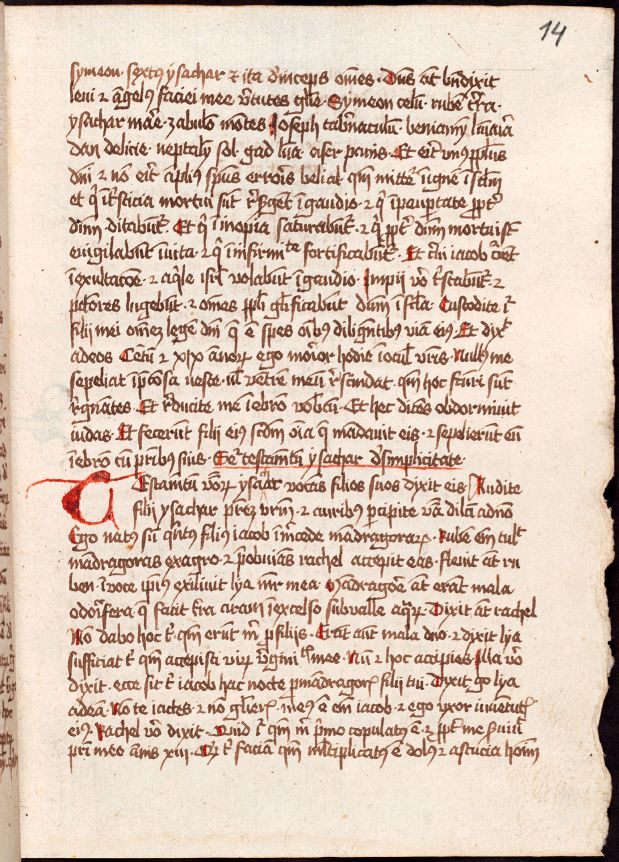 14
symeon · sextus ysachar et ita deinceps omnes · Dns at bndixit
leui et angelus faciei mee virtutes glorie · Symeon celum · ruben terra ·
ysachar mare · zabulon montes Joseph tabernaculum · beniamyn luminaria
dan delicie · neptalym sol · gad luna · aser panis · Et erit unus populus
dni et non erit amplius spiritus erroris belial · qm mittetur in ignem
et qui in tristicia mortui sunt resurgent in gaudio · et qui in paupertate propter
dnm ditabuntur · Et qui in inopia saturabuntur · et qui propter dnm mortui sunt
euigilabunt in uita · et qui in infirmitate fortificabuntur · Et cerui iacob current
in exultacione · et aquile israel volabunt in gaudio · Impii vero tristabuntur · et
peccatores lugebunt · et omnes populi glorificabunt dnm in secula · Custodite igitur
filii mei omnem legem dni que est spes omnibus diligentibus viam eius · Et dixit
ad eos Centum et xix annorum ego morior hodie in oculis vestris · Nullus me
sepeliat in preciosa veste · uel ventrem meum rescindat · qm hoc facturi sunt
regnantes · Et reducite me in ebron vobiscum · Et hec dicens obdormiuit
iudas · Et fecerunt filii eius secundum omnia que mandauit eis · et sepelierunt eum
in ebron cum patribus suis · testamentum ysachar de simplicitate ·
Testamentum verborum ysachar vocans filios suos dixit eis Audite
filii ysachar patrem vestrum · et auribus percipite verba dilecti a domino
Ego natus sum quintus filius iacob in mercede mandragorarum · Ruben enim tulit
mandragoras ex agro · et preobuians rachel accepit eas · fleuit autem ru
ben · in voce ipsius exiliuit lya mater mea · Mandragore autem erant mala
odorifera que facit terra aram in excelso sub valle aquarum · Dixit autem rachel
Non dabo hoc tibi qm erunt mihi pro filiis · Erant autem mala duo · et dixit lya
sufficiat tibi qm accepisti virum virginitatis mee · Num et hoc accipies Illa vero
dixit · ecce sit tibi iacob hac nocte pro mandragoris filii tui · Dixit ergo lya
ad eam · Non te iactes · et non glorieris · meus est enim iacob · et ego vxor iuuentutis
eius · Rachel vero dixit · Quid tibi qm mihi primo copulatus est · et propter me seruiuit
patri meo annis xiiii · Quid tibi faciam qm multiplicatus est dolus et astucia hominum